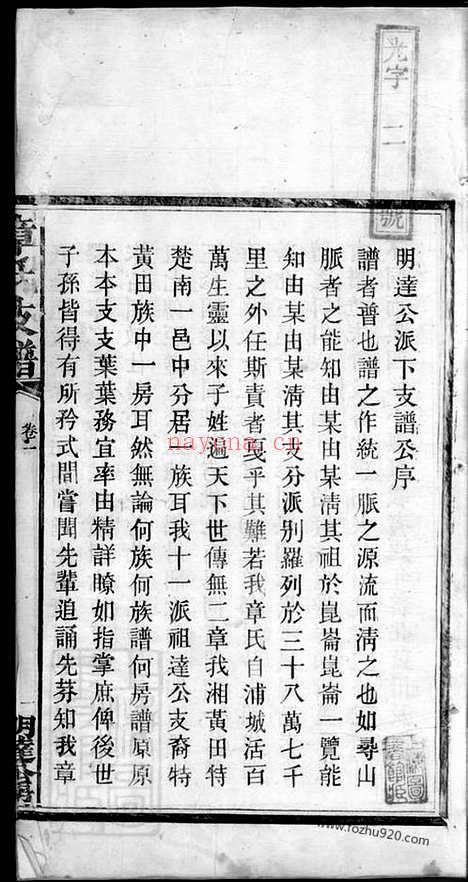 光字二號
明達公派下支譜公序
譜者普也譜之作統一脈之源流而清之也如尋山
脈者之能知由某由某清其祖於崑崙崑崙一覽能
知由某由某清其支分派別羅列於三十八萬七千
里之外任斯責者戛乎其難若我章氏自浦城活百
萬生靈以來子姓遍天下世傳無二章我湘黃田特
楚南一邑中分居 族耳我十一派祖達公支裔特
黃田族中一房耳然無論何族何族譜何房譜原原
本本支支葉葉務宜率由精詳瞭如指掌庶俾後世
子孫皆得有所矜式間嘗聞先輩追誦先芬知我章
章氏支譜
卷二
一
明達公房
nayona.cn
www.fozhu920.com